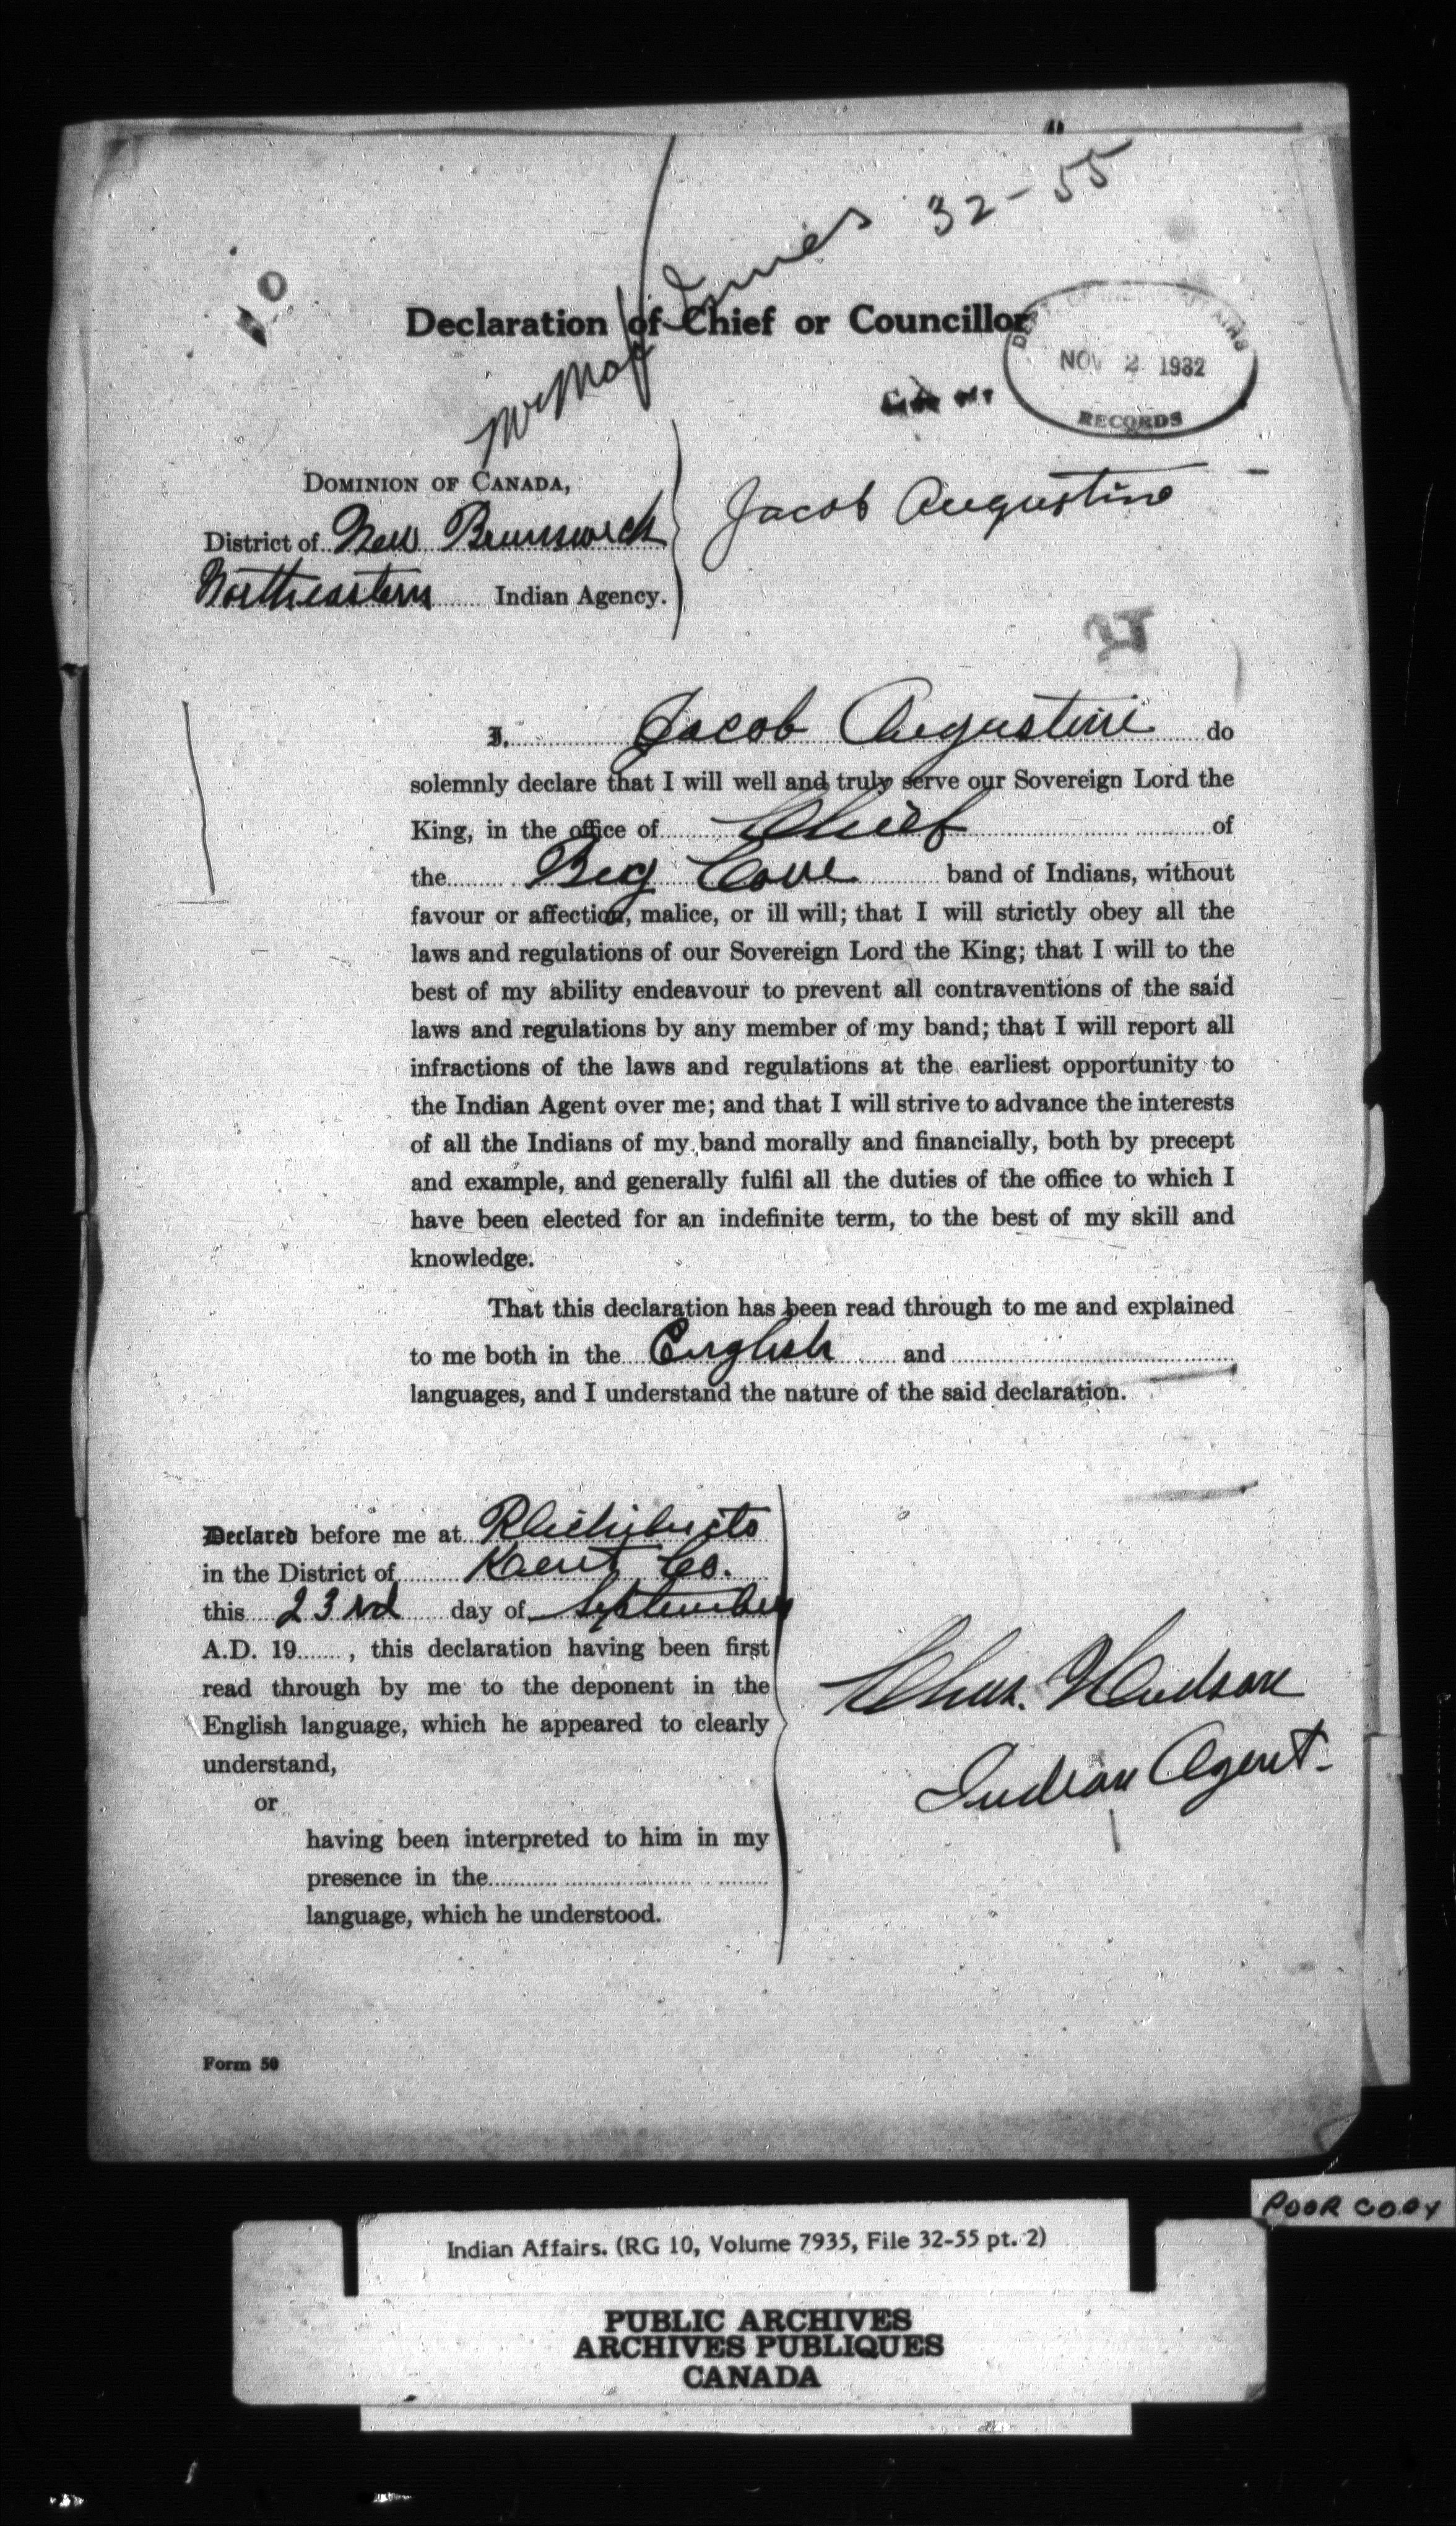 32-55
Declaration of Chief or Councillor
DEPT. OF INDIAN AFFAIRS
NOV 2 1932
RECORDS
DOMINION OF CANADA,
District of New Brunswick
Northeastern Indian Agency.
Jacob Augustine
I, Jacob Augustine do
solemnly declare that I will well and truly serve our Sovereign Lord the
King, in the office of Chief of
the Big Cove band of Indians, without
favour or affection, malice, or ill will; that I will strictly obey all the
laws and regulations of our Sovereign Lord the King; that I will to the
best of my ability endeavour to prevent all contraventions of the said
laws and regulations by any member of my band; that I will report all
infractions of the laws and regulations at the earliest opportunity to
the Indian Agent over me; and that I will strive to advance the interests
of all the Indians of my band morally and financially, both by precept
and example, and generally fulfil all the duties of the office to which I
have been elected for an indefinite term, to the best of my skill and
knowledge.
That this declaration has been read through to me and explained
to me both in the English and
languages, and I understand the nature of the said declaration.
Declared before me at Richibucto
in the District of Kent Co.
this 23rd day of September
A.D. 19......, this declaration having been first
read through by me to the deponent in the
English language, which he appeared to clearly
understand,
or
having been interpreted to him in my
presence in the
language, which he understood.
Chas. Hudson
Indian Agent.
Form 50
POOR COPY
Indian Affairs. (RG 10, Volume 7935, File 32-55 pt. 2)
PUBLIC ARCHIVES
ARCHIVES PUBLIQUES
CANADA